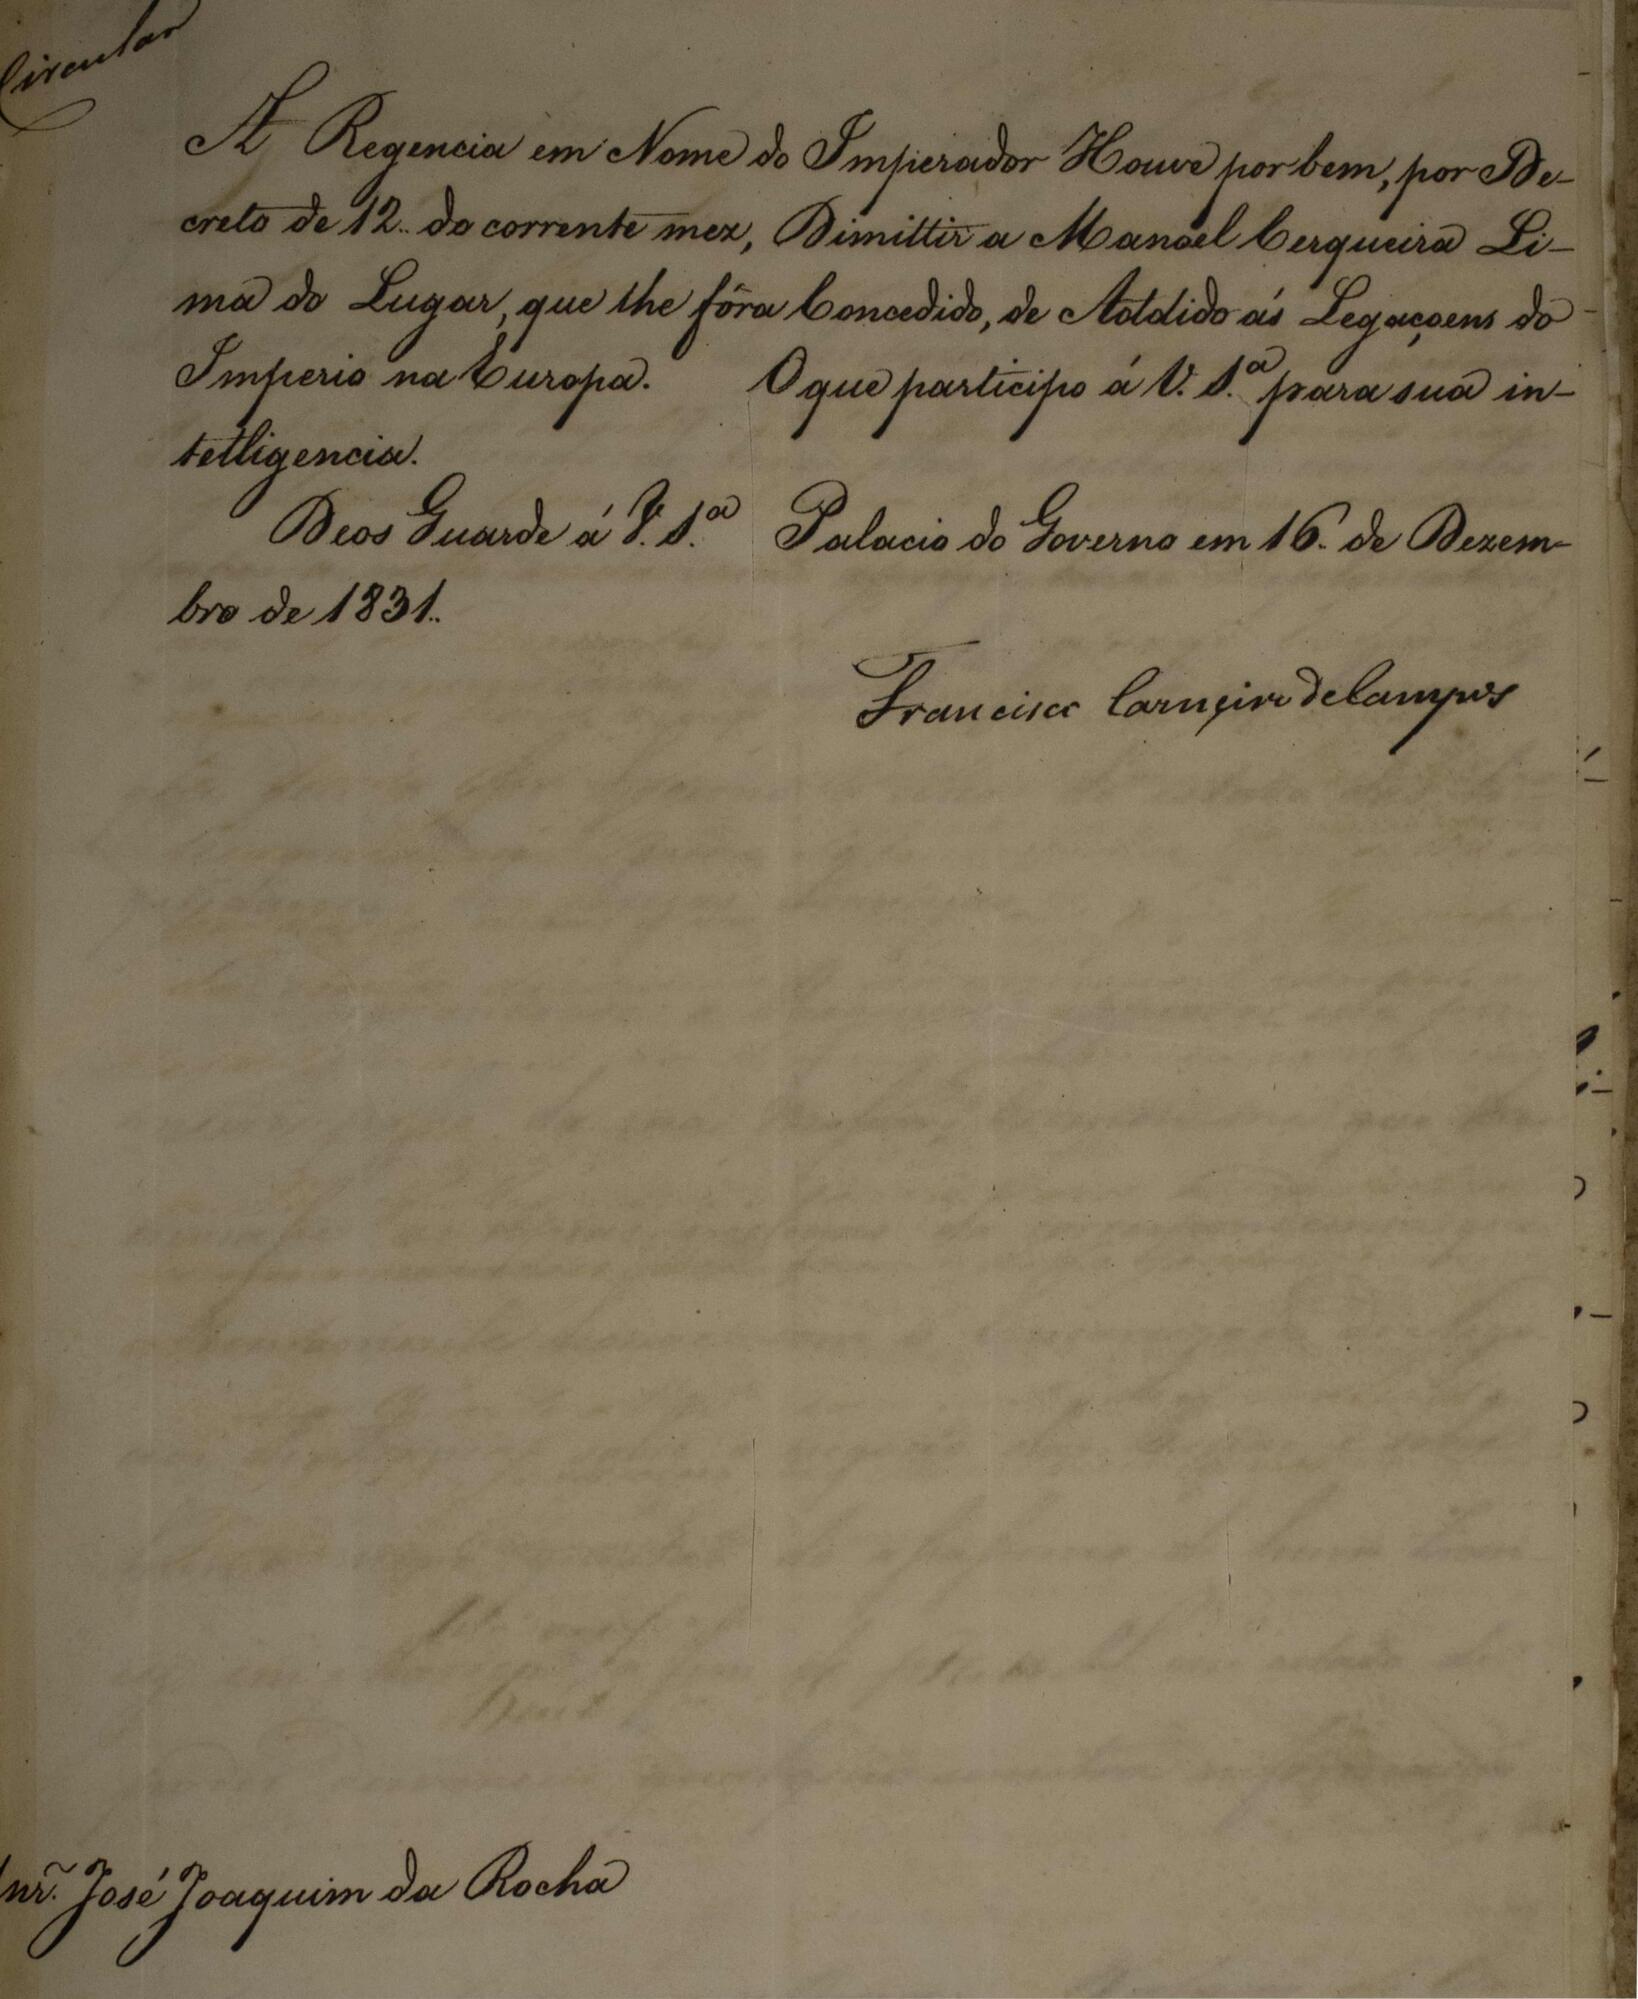 Circular
A Regencia em Nome do Imperador Houve por bem, por De-
creto de 12.. do corrente mez, Dimittir a Manoel Cerqueira Li-
ma do Lugar, que lhe fôra Concedido, de Addido ás Legaçoens do
Imperio na Europa. O que participo á V. S.ª para sua in-
telligencia.
Deos Guarde á V. S.ª Palacio do Governo em 16.. de Dezem-
bro de 1831..
Francisco Carneiro de Campos
Snr. José Joaquim da Rocha